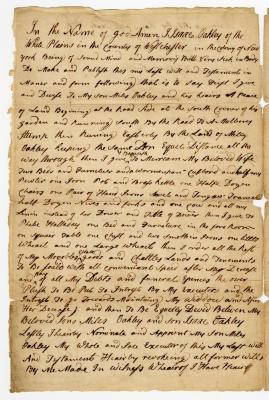 In the Name of god Amen I Isaac Oakley of the
White Plains in the County of Westchester in the Colony of New
York Being of Sound Mind and Memory Butt Very Sick in Body
Do Make and Publish this my Last Will and Testament in
Maner and form following that is to Say First I give
and Devise To My Son Miles Oakley and his heirs A Peace
of Land Begining at the Road Side at the South Corner of the
garden and Running South By the Road To A Mulberry
Stump then Runing Easterly By the Land of Miles
Oakley Keeping the Same Equel Distance all the
way through then I give To Miriam My Beloved Wife
Two Beds and furniture and Cubbard and half my
Puter one Iron Pot and Brass Kettle one Half Dozen
Chairs one Pair of Hand Irons Shovel and Tongs one
half Dozen Nives and forks and one Cow and all my
Linin instead of her Dower and Table then I give To
one Bed and furniture in the
one Spring Table one Chest and one
Wheal and one Large Wheal then I order all the Rest
of My Moveable goods and Chattles Lands and Tenements
To Be Sould with all convenient Speed after My Decease
and all My Debts and funeral Expences the over
Plush To Be Put To Intrest By My Executor and the
Intrest To go towards Maintaining My Widdow and After
Her Decease and then To Be Equelly Devided Between My
Beloved Sons Miles Oakley and Son Isaac Oakley
Lastly I hearby Nominate and Appoint My Son Miles
Oakley My Whole and Sole Executor of this My Last Will
And Testament Hearby revoking all former Wills
By Me Made In Witness Whearof I Have Hearby